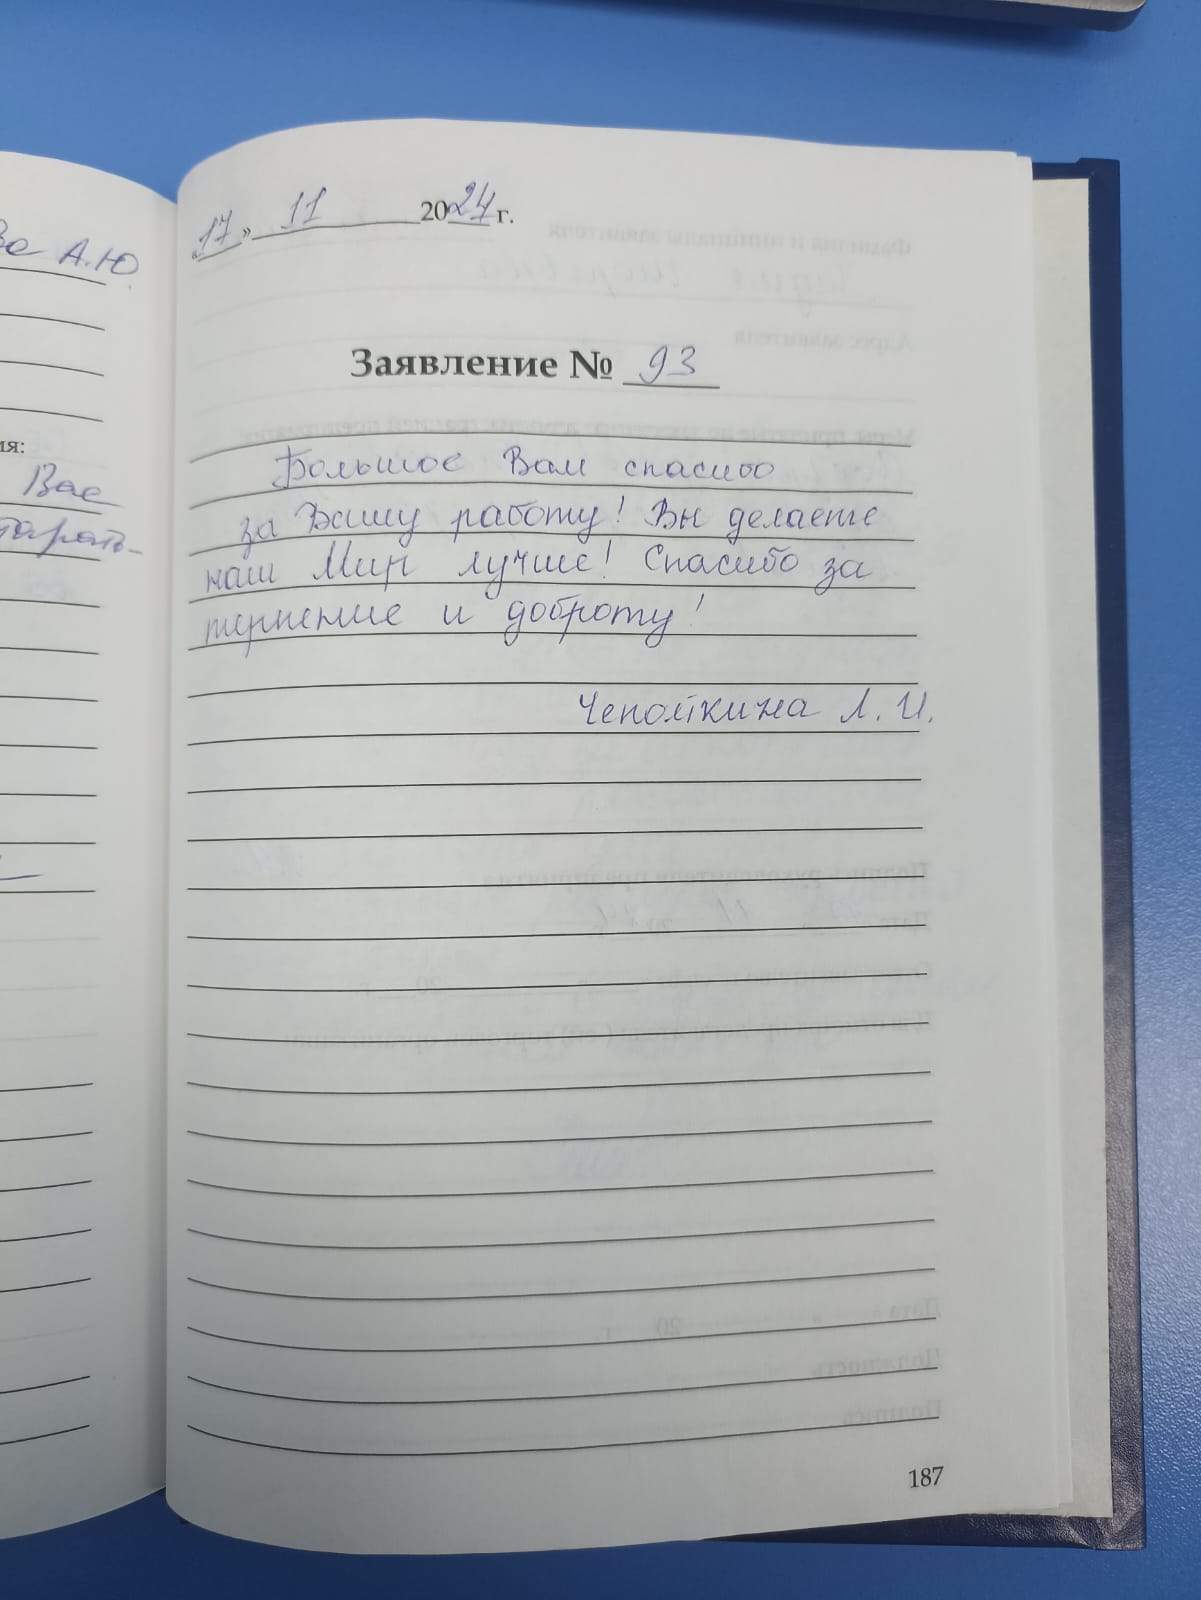 А.Ю.
ия:
Вас
«17» 11 2024 г.
Заявление № 93
Большое Вам спасибо
за Вашу работу! Вы делаете
наш Мир лучше! Спасибо за
терпение и доброту!
Чепойкина Л. И.
187